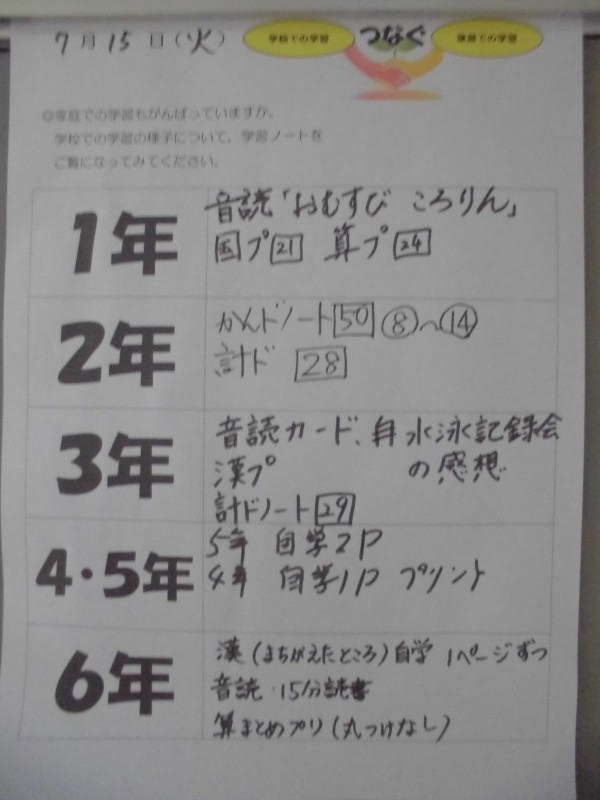 7月15日(火)
学校での学習
つなぐ
家庭での学習
◎家庭での学習もがんばっていますか。
学校での学習の様子について、学習ノートを
ご覧になってみてください。
1年
音読「おむすび ころりん」
国プ21 算プ24
2年
かんドノート50 ⑧〜⑭
計ド 28
3年
音読カード、自 水泳記録会
漢プ の感想
計ドノート29
4・5年
5年 自学2P
4年 自学1P プリント
6年
漢(まちがえたところ)自学 1ページずつ
音読・15分読書
算まとめプリ(丸つけなし)